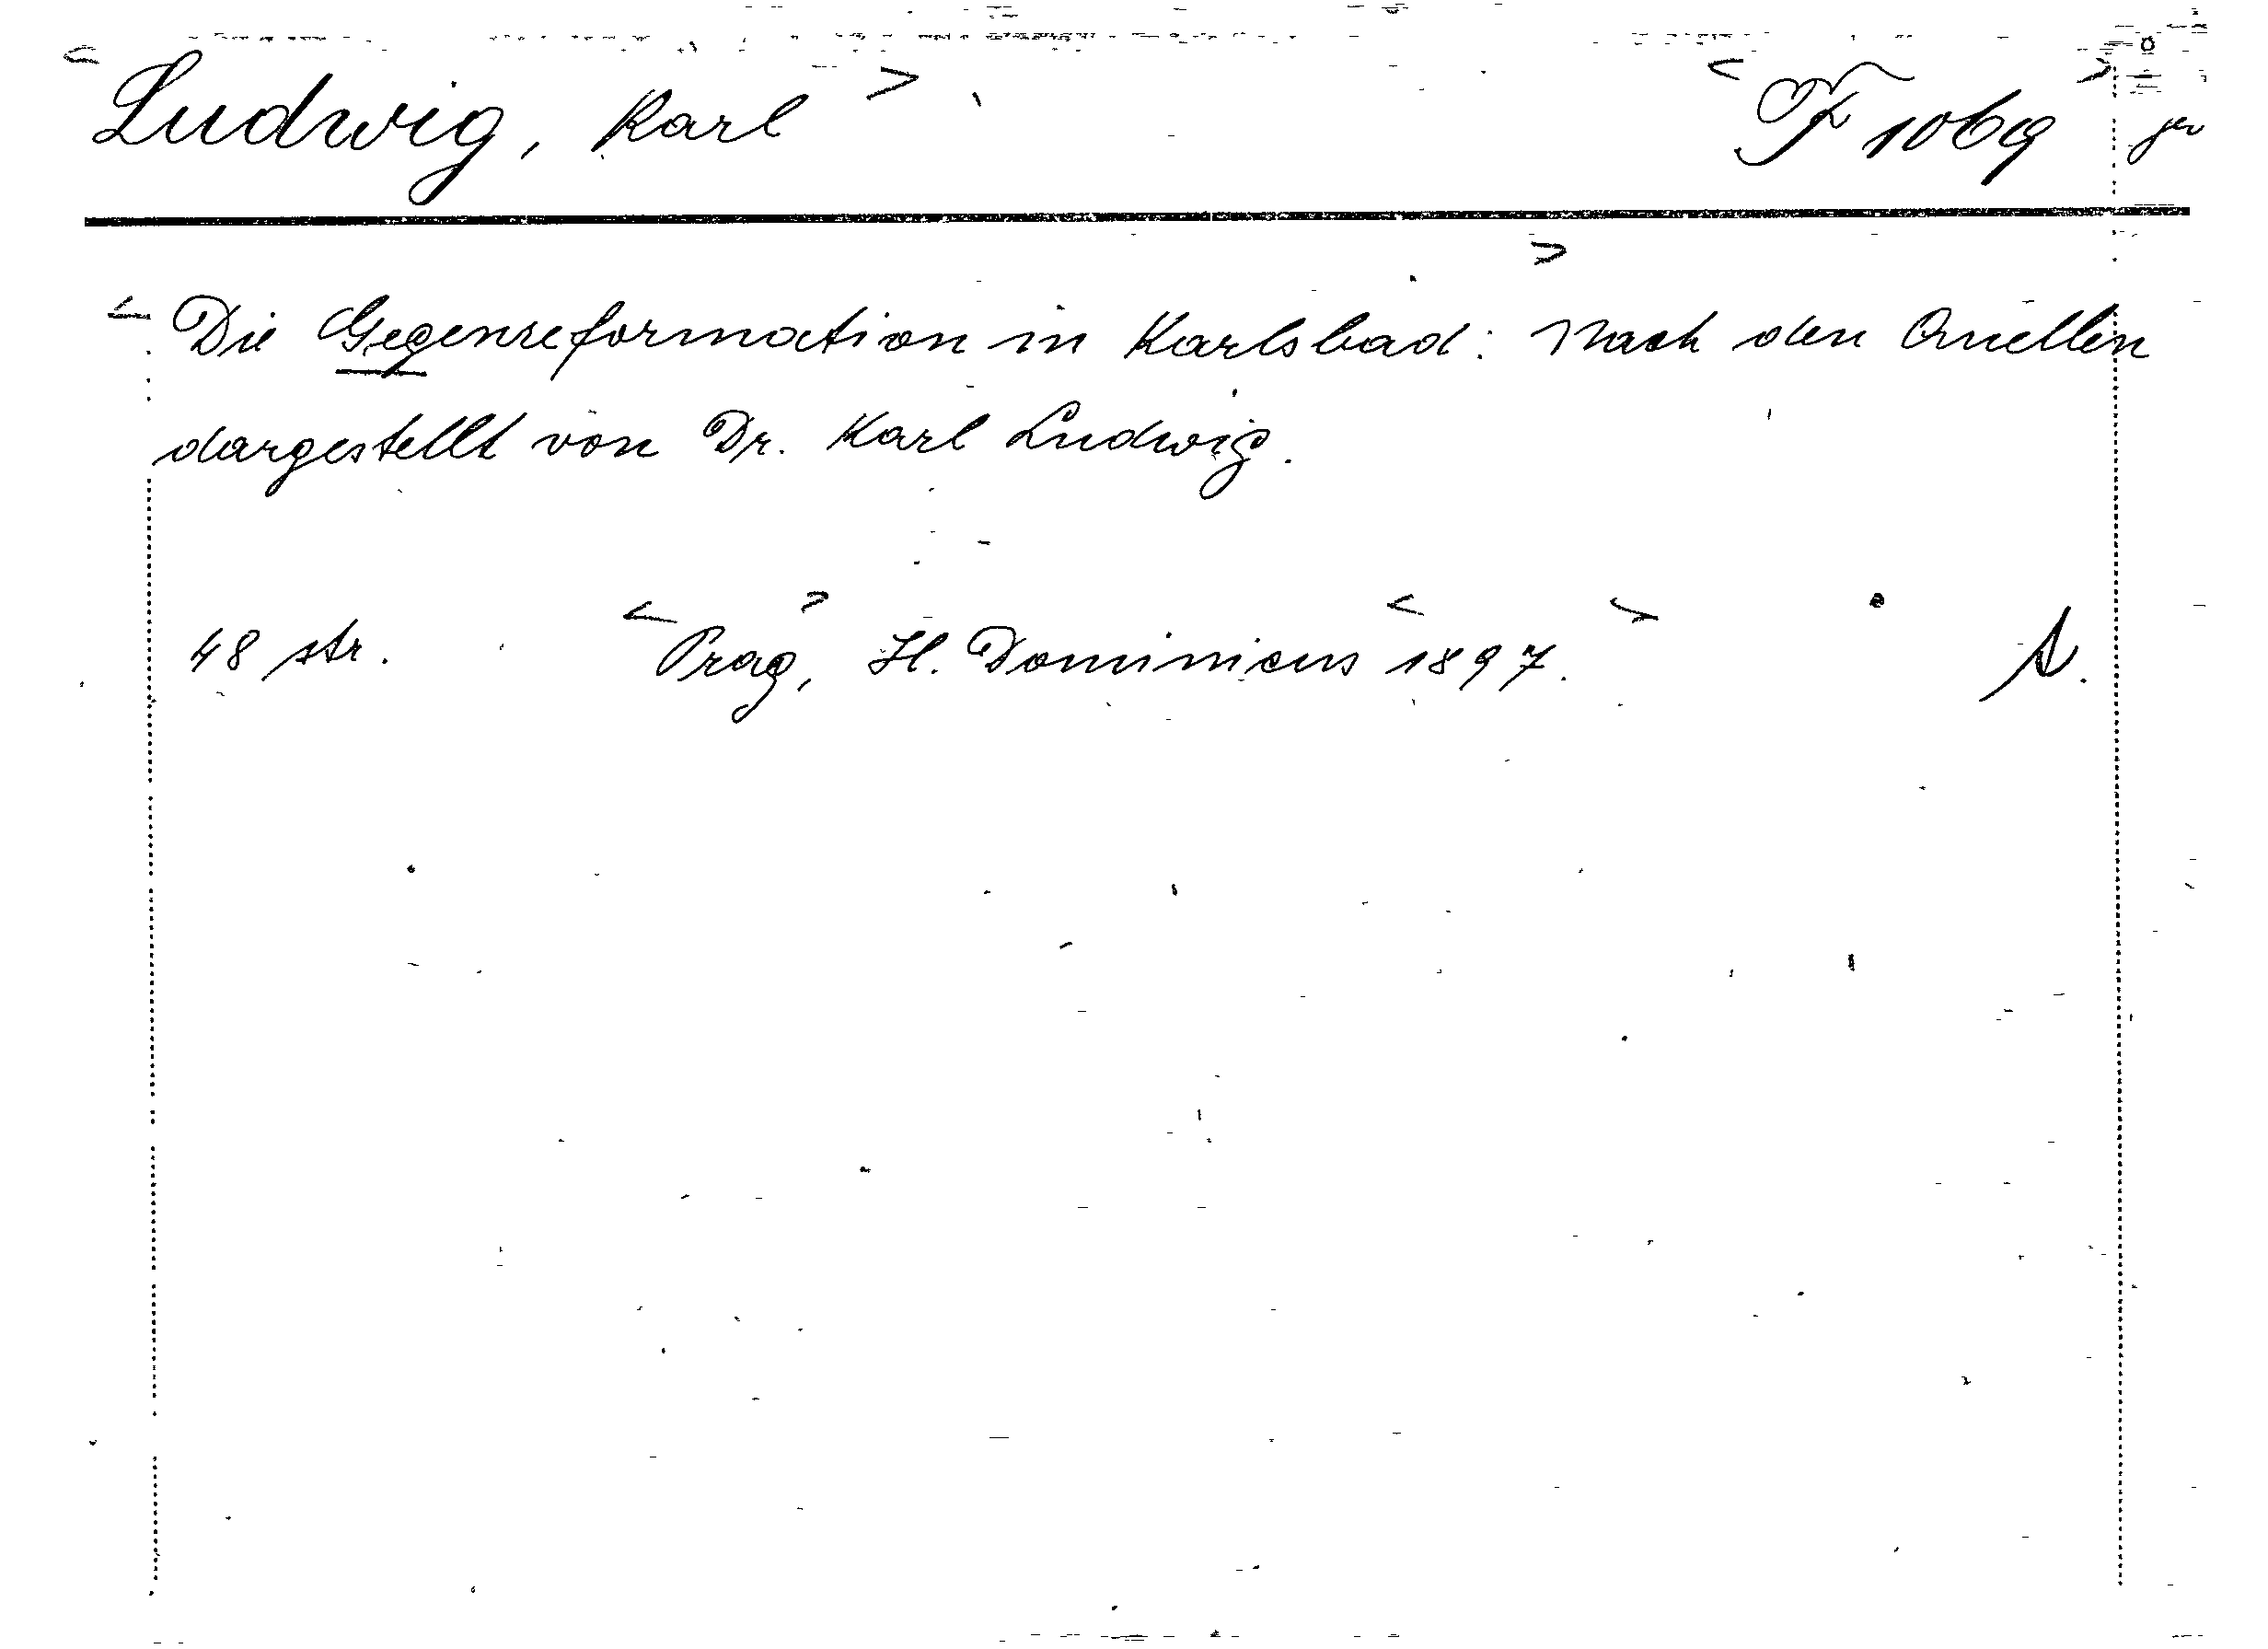 <Ludwig, Karl> <F 1069>
<Die Gegenreformation in Karlsbad:> Nach den Quellen
dargestellt von Dr. Karl Ludwig.
48 str. <Prag>, H. Dominicus <1897.>